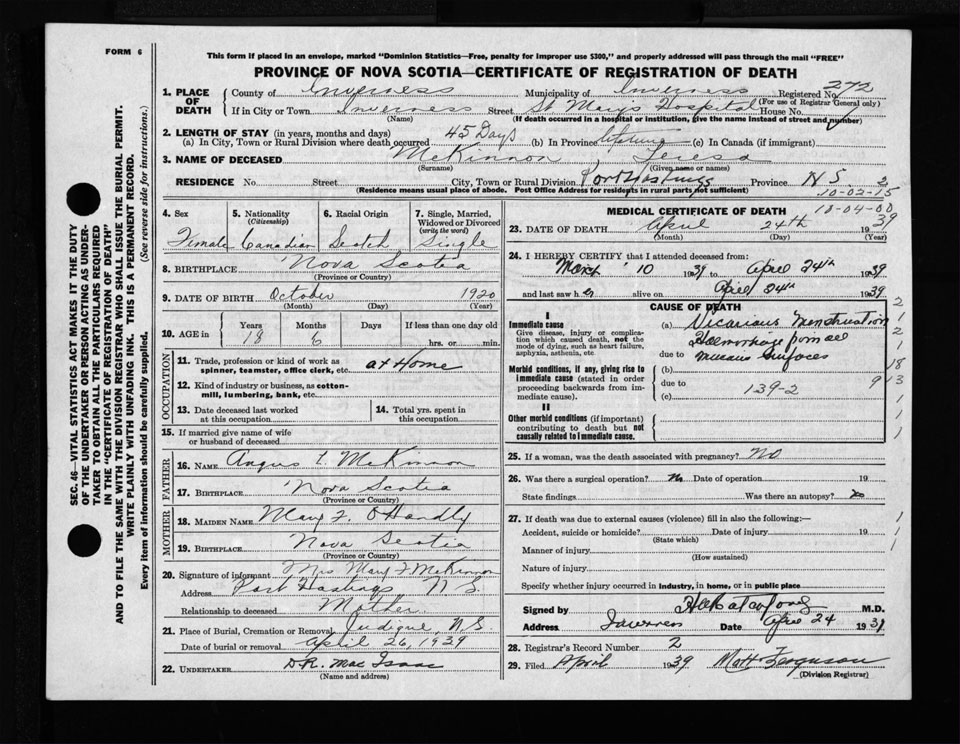 FORM 6
This form if placed in an envelope, marked "Dominion Statistics—Free, penalty for improper use $300," and properly addressed will pass through the mail "FREE"
PROVINCE OF NOVA SCOTIA—CERTIFICATE OF REGISTRATION OF DEATH
SEC. 46—VITAL STATISTICS ACT MAKES IT THE DUTY
OF THE UNDERTAKER OR PERSON ACTING AS UNDER-
TAKER TO OBTAIN ALL THE PARTICULARS REQUIRED
IN THE "CERTIFICATE OF REGISTRATION OF DEATH"
AND TO FILE THE SAME WITH THE DIVISION REGISTRAR WHO SHALL ISSUE THE BURIAL PERMIT.
WRITE PLAINLY WITH UNFADING INK. THIS IS A PERMANENT RECORD.
Every item of information should be carefully supplied. (See reverse side for instructions.)
1. PLACE OF DEATH County of Inverness Municipality of Inverness Registered No. 272
(For use of Registrar General only)
If in City or Town Inverness Street St Mary's Hospital House No.
(Name) (If death occurred in a hospital or institution, give the name instead of street and number)
2. LENGTH OF STAY (in years, months and days)
(a) In City, Town or Rural Division where death occurred 45 Days (b) In Province lifetime (c) In Canada (if immigrant)
3. NAME OF DECEASED McKinnon, Teresa
(Surname) (Given name or names)
RESIDENCE No. Street City, Town or Rural Division Port Hastings Province N S. 2
(Residence means usual place of abode. Post Office Address for residents in rural parts not sufficient)
10-02-15
10-04-00
4. Sex Female
5. Nationality (Citizenship) Canadian
6. Racial Origin Scotch
7. Single, Married, Widowed or Divorced (write the word) Single
8. BIRTHPLACE Nova Scotia
(Province or Country)
9. DATE OF BIRTH October 1920
(Month) (Day) (Year)
10. AGE in Years 18 Months 6 Days If less than one day old hrs. or min.
OCCUPATION
11. Trade, profession or kind of work as spinner, teamster, office clerk, etc. at Home
12. Kind of industry or business, as cotton-mill, lumbering, bank, etc.
13. Date deceased last worked at this occupation
14. Total yrs. spent in this occupation
15. If married give name of wife or husband of deceased
FATHER
16. NAME Angus L McKinnon
17. BIRTHPLACE Nova Scotia
(Province or Country)
MOTHER
18. MAIDEN NAME Mary F. O'Handly
19. BIRTHPLACE Nova Scotia
(Province or Country)
20. Signature of informant Mrs Mary F McKinnon
Address Port Hastings N S.
Relationship to deceased Mother
21. Place of Burial, Cremation or Removal Judique, N.S.
Date of burial or removal April 26, 1939
22. UNDERTAKER D R. Mac Isaac
(Name and address)
MEDICAL CERTIFICATE OF DEATH
23. DATE OF DEATH April 24th 1939
(Month) (Day) (Year)
24. I HEREBY CERTIFY that I attended deceased from:
March 10 1939 to April 24th 1939
and last saw her alive on April 24th 1939
CAUSE OF DEATH
I
Immediate cause
Give disease, injury or complication which caused death, not the mode of dying, such as heart failure, asphyxia, asthenia, etc.
(a) Vicarious Menstruation
Haemorrhage from all
due to mucous surfaces
Morbid conditions, if any, giving rise to immediate cause (stated in order proceeding backwards from immediate cause).
(b)
due to 139-2
(c)
II
Other morbid conditions (if important) contributing to death but not causally related to immediate cause.
2
1
2
1
18
9 13
1
1
1
25. If a woman, was the death associated with pregnancy? NO
26. Was there a surgical operation? No Date of operation 19
State findings Was there an autopsy? No
27. If death was due to external causes (violence) fill in also the following:—
Accident, suicide or homicide? Date of injury 19
(State which)
Manner of injury
(How sustained)
Nature of injury
Specify whether injury occurred in industry, in home, or in public place
1
1
1
Signed by M.D.
Address Inverness Date April 24 1939
28. Registrar's Record Number 2
29. Filed April 1939 Matt Ferguson
(Division Registrar)